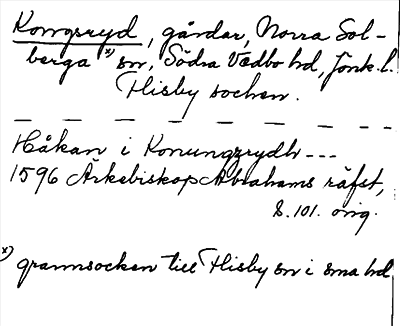 Kongsryd, gårdar, Norra Sol-
berga x) sn, Södra Vedbo hd, Jönk. l.
Flisby socken.
Håkan i Konungzrydh ---
1596 Ärkebiskop Abrahams räfst,
s. 101. orig.
x) grannsocken till Flisby sn i sma hd